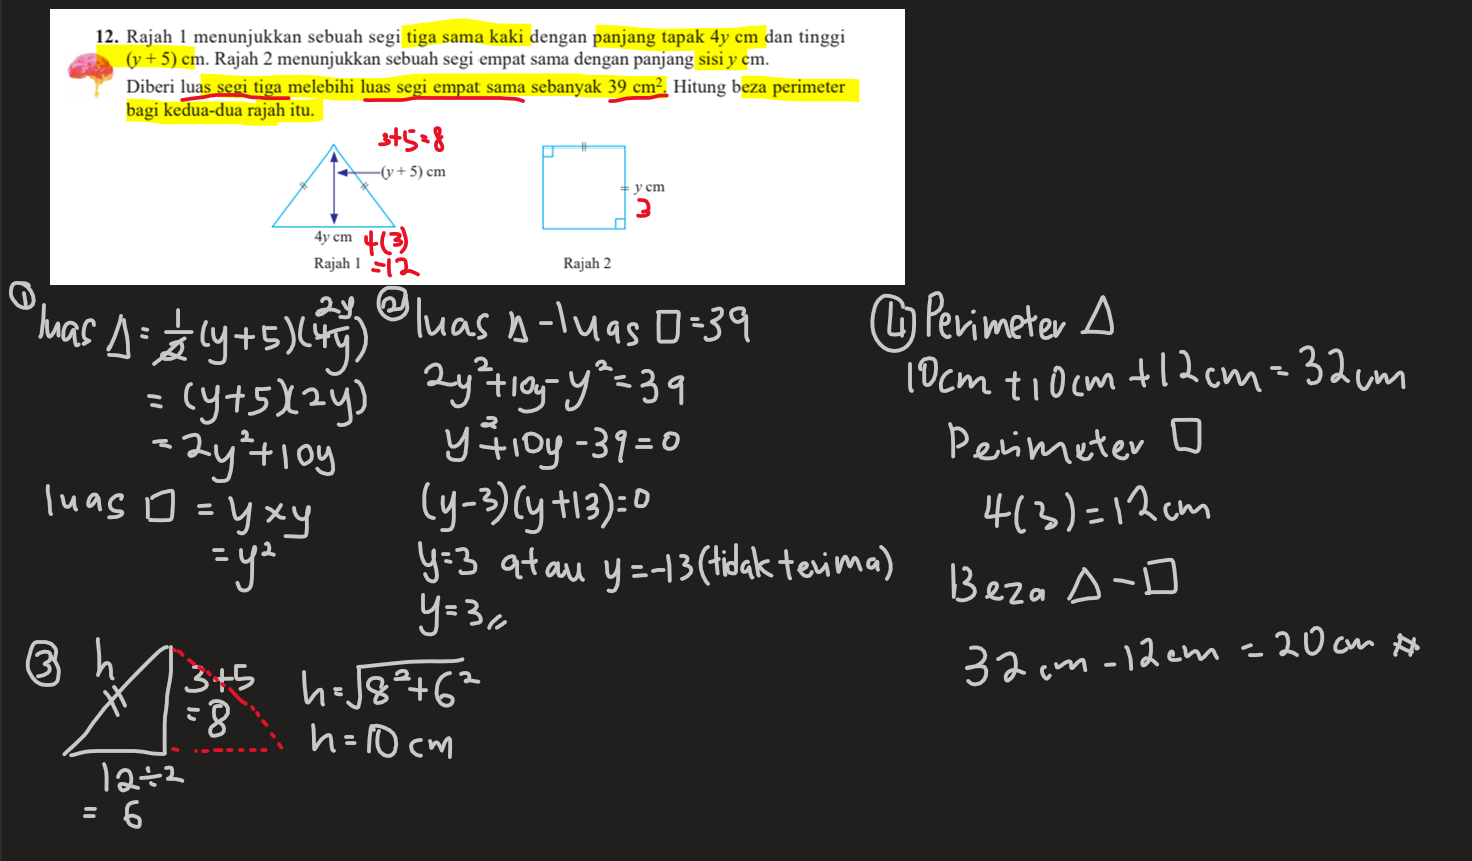 12. Rajah 1 menunjukkan sebuah segi tiga sama kaki dengan panjang tapak 4y cm dan tinggi
(y + 5) cm. Rajah 2 menunjukkan sebuah segi empat sama dengan panjang sisi y cm.
Diberi luas segi tiga melebihi luas segi empat sama sebanyak 39 cm². Hitung beza perimeter
bagi kedua-dua rajah itu.
3+5=8
(y + 5) cm
4y cm
4(3)
=12
Rajah 1
y cm
3
Rajah 2
①
luas Δ = 1/2 (y+5)(4y) 2y
= (y+5)(2y)
= 2y²+10y
luas □ = y×y
= y²
②
luas Δ - luas □ = 39
2y²+10y-y²=39
y²+10y-39=0
(y-3)(y+13)=0
y=3 atau y=-13 (tidak terima)
y=3//
③
h
3+5
=8
12÷2
= 6
h=√8²+6²
h=10cm
④ Perimeter Δ
10cm+10cm+12cm=32cm
Perimeter □
4(3)=12cm
Beza Δ-□
32cm-12cm=20cm #